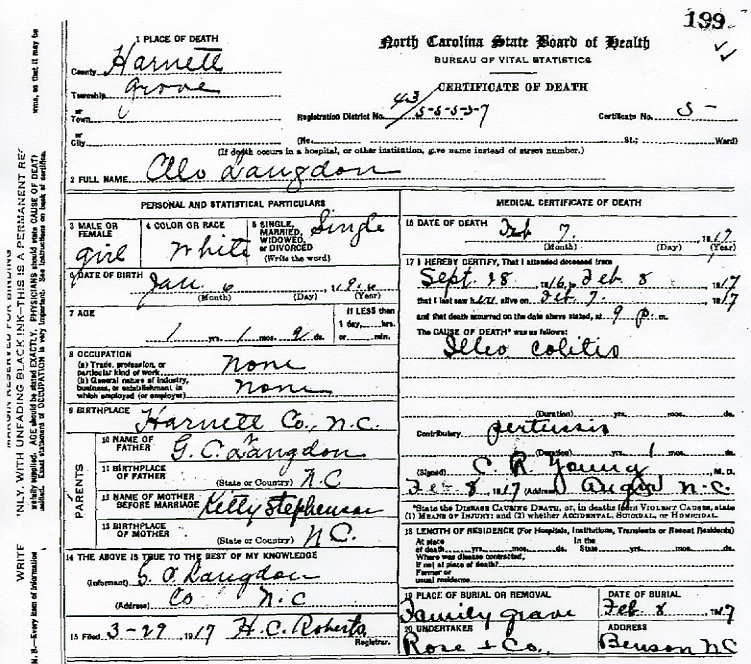 199
1 PLACE OF DEATH
North Carolina State Board of Health
BUREAU OF VITAL STATISTICS
County Harnett
CERTIFICATE OF DEATH
Township Grove
or
Town
Registration District No. 43/5-5-5-5-7 Certificate No. 5-
or
City (No. St.; Ward)
(If death occurs in a hospital, or other institution, give name instead of street number.)
2 FULL NAME Cleo Langdon
PERSONAL AND STATISTICAL PARTICULARS
3 MALE OR FEMALE girl
4 COLOR OR RACE White
5 SINGLE, MARRIED, WIDOWED, or DIVORCED (Write the word) Single
6 DATE OF BIRTH Jan 6
(Month) (Day) (Year)
7 AGE
1 yrs. 1 mos. 2 ds.
If LESS than 1 day, hrs. or min.
8 OCCUPATION
(a) Trade, profession, or particular kind of work none
(b) General nature of industry, business, or establishment in which employed (or employer) none
9 BIRTHPLACE Harnett Co., N.C.
PARENTS
10 NAME OF FATHER G. C. Langdon
11 BIRTHPLACE OF FATHER (State or Country) N C
12 NAME OF MOTHER BEFORE MARRIAGE Ketty Stephenson
13 BIRTHPLACE OF MOTHER (State or Country) N C.
14 THE ABOVE IS TRUE TO THE BEST OF MY KNOWLEDGE
(Informant) Langdon
(Address) Co N.C
15 Filed 3-29 1917 H. C. Roberts
Registrar.
MEDICAL CERTIFICATE OF DEATH
16 DATE OF DEATH Feb 7, 1917
(Month) (Day) (Year)
17 I HEREBY CERTIFY, That I attended deceased from
Sept. 28 1916, to Feb 8 1917
that I last saw her alive on Feb 7. 1917
and that death occurred on the date above stated, at 9 p. m.
The CAUSE OF DEATH* was as follows:
Illeo colitis
(Duration) yrs. mos. ds.
Contributory pertussis
(Duration) yrs. 1 mos. ds.
(Signed) C R Young M.D.
Feb 8 1917 (Address) Angier N.C.
*State the DISEASE CAUSING DEATH, or, in deaths from VIOLENT CAUSES, state
(1) MEANS OF INJURY; and (2) whether ACCIDENTAL, SUICIDAL, or HOMICIDAL.
18 LENGTH OF RESIDENCE (For Hospitals, Institutions, Transients or Recent Residents)
At place of death yrs. mos. ds. In the State yrs. mos. ds.
Where was disease contracted,
if not at place of death?
Former or
usual residence
19 PLACE OF BURIAL OR REMOVAL DATE OF BURIAL
Family grave Feb 8 1917
20 UNDERTAKER ADDRESS
Rose & Co., Benson NC
MARGIN RESERVED FOR BINDING
WRITE
NLY, WITH UNFADING BLACK INK—THIS IS A PERMANENT REC
N. B.—Every item of information
efully supplied. AGE should be stated EXACTLY. PHYSICIANS should state CAUSE OF DEATH
erms, so that it may be
assified. Exact statement of OCCUPATION is very important. See instructions on back of certificate.